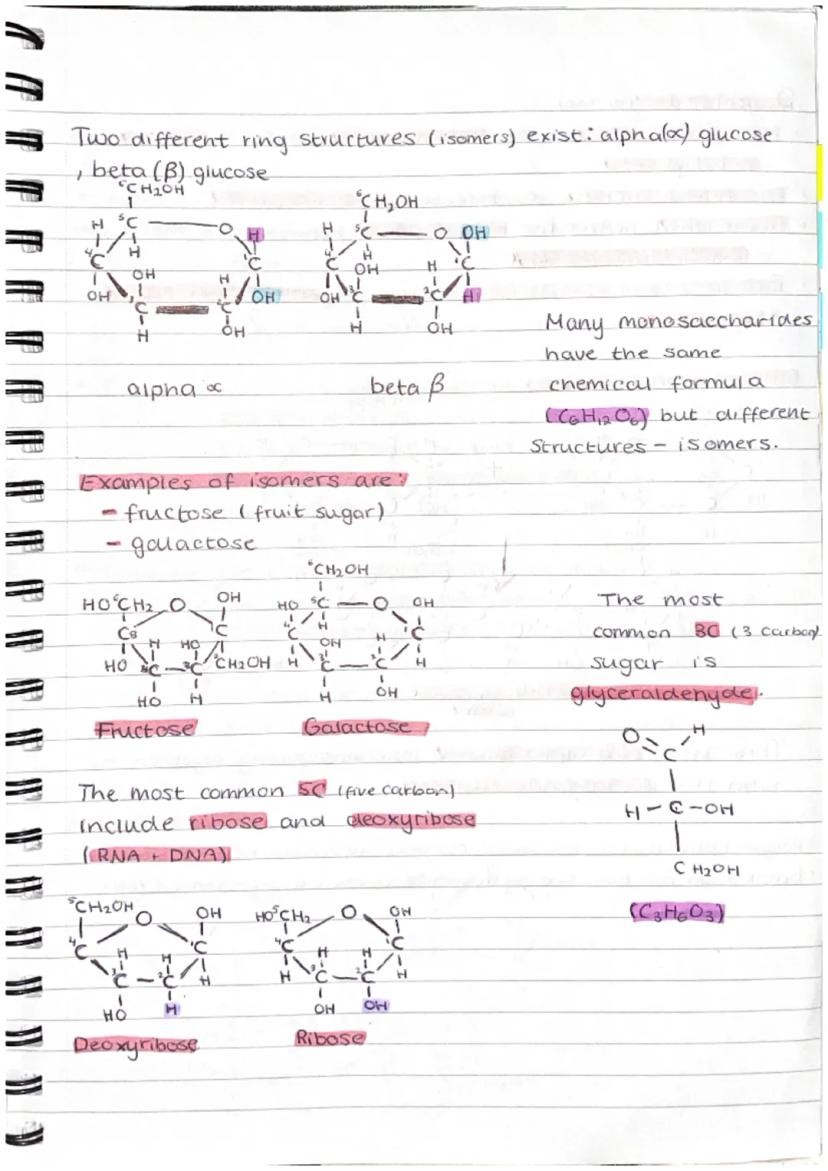 Two different ring structures (isomers) exist: alpha(∝) glucose
, beta (β) glucose
⁶CH₂OH
⁵C O H
H H
⁴C OH H ¹C
OH ³C ²C OH
H OH
alpha ∝
⁶CH₂OH
H ⁵C O OH
⁴C H OH H ¹C
OH ³C ²C H
H OH
beta β
Many monosaccharides
have the same
chemical formula
(C₆H₁₂O₆) but different
structures – isomers.
Examples of isomers are:
- fructose (fruit sugar)
- galactose
HO⁶CH₂ O OH
C⁵ H HO C
HO ⁴C ³C ¹CH₂OH
HO H
Fructose
⁶CH₂OH
HO ⁵C O OH
⁴C H OH H ¹C
H ³C ²C H
H OH
Galactose
The most
common 3C (3 carbon)
sugar is
glyceraldehyde.
O H
C
H – C – OH
CH₂OH
(C₃H₆O₃)
The most common 5C (five carbon)
include ribose and deoxyribose
(RNA + DNA)
⁵CH₂OH O OH
⁴C H H ¹C
³C – ²C H
HO H
Deoxyribose
HO⁵CH₂ O OH
⁴C H H ¹C
H ³C – ²C H
OH OH
Ribose